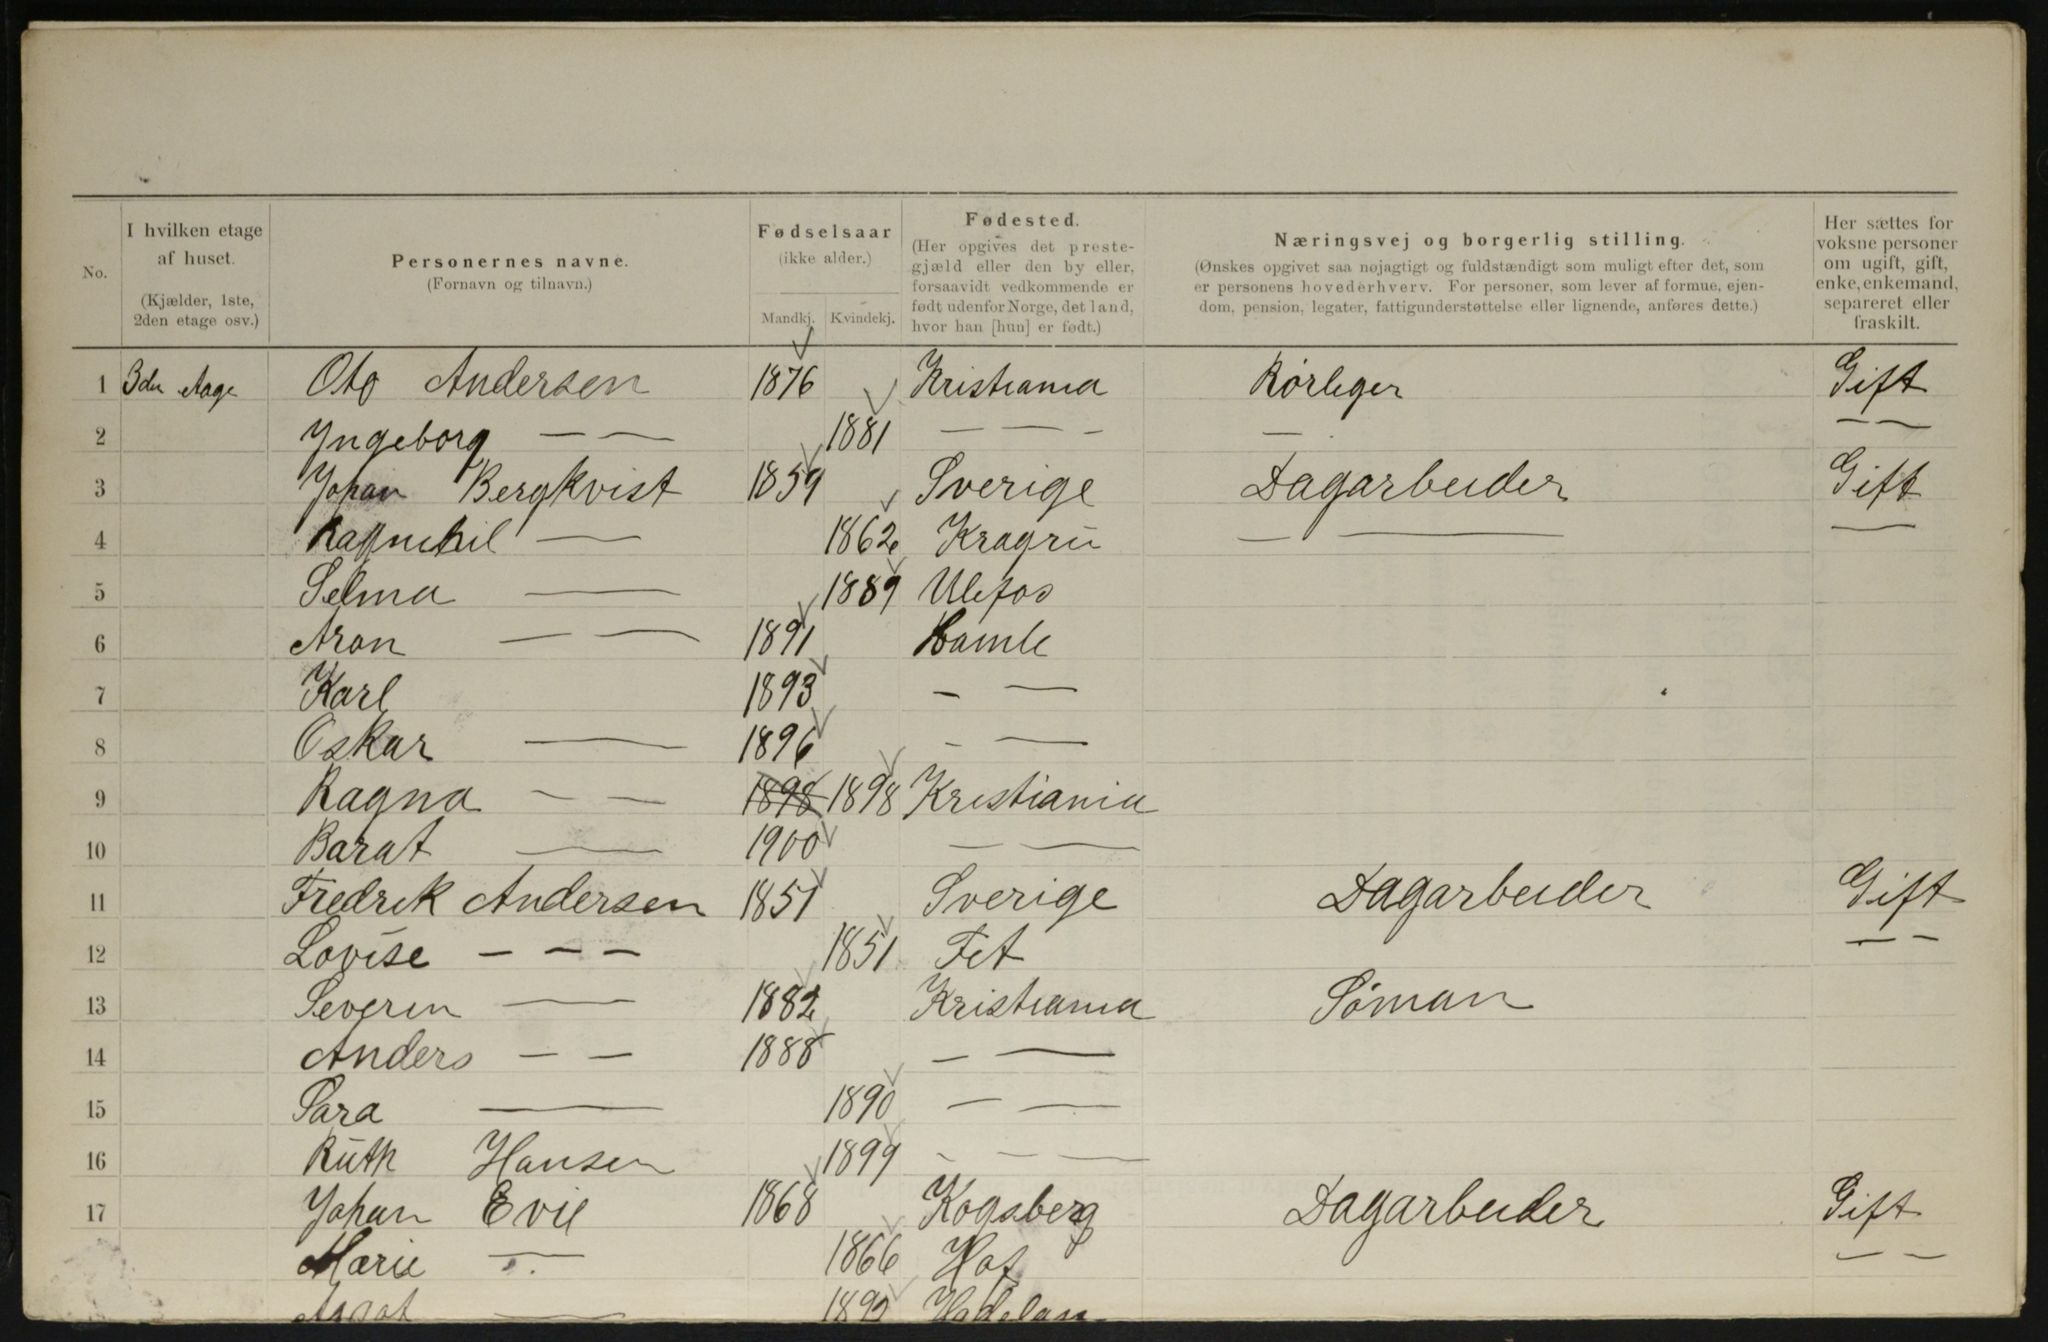 No.
I hvilken etage af huset.
(Kjælder, 1ste, 2den etage osv.)
Personernes navne.
(Fornavn og tilnavn.)
Fødselsaar
(ikke alder.)
Mandkj. Kvindekj.
Fødested.
(Her opgives det prestegjæld eller den by eller, forsaavidt vedkommende er født udenfor Norge, det land, hvor han [hun] er født.)
Næringsvej og borgerlig stilling.
(Ønskes opgivet saa nøjagtigt og fuldstændigt som muligt efter det, som er personens hovederhverv. For personer, som lever af formue, ejendom, pension, legater, fattigunderstøttelse eller lignende, anføres dette.)
Her sættes for voksne personer om ugift, gift, enke, enkemand, separeret eller fraskilt.
1 3die etage Oto Andersen 1876 Kristiania Rörleger Gift
2 Yngeborg — — 1881 — — - — — —
3 Johan Bergkvist 1859 Sverige Dagarbeider Gift
4 Ragnuhil — 1862 Kragrü — — —
5 Selma — 1889 Ulefos
6 Aron — — 1891 Bamle
7 Karl 1893 - —
8 Oskar — 1896 - —
9 Ragna — — 1898 1898 Kristiania
10 Barat — 1900 — —
11 Fredrik Andersen 1851 Sverige Dagarbeider Gift
12 Lovise — — — 1851 Fet — —
13 Severin — 1882 Kristiania Söman
14 Anders — — 1888 — —
15 Sara — 1890 — —
16 Ruth Hansen 1899 - — —
17 Johan Evil 1868 Kogsberg Dagarbeider Gift
Marie — 1866 Hof — —
— 1892 Hadelan